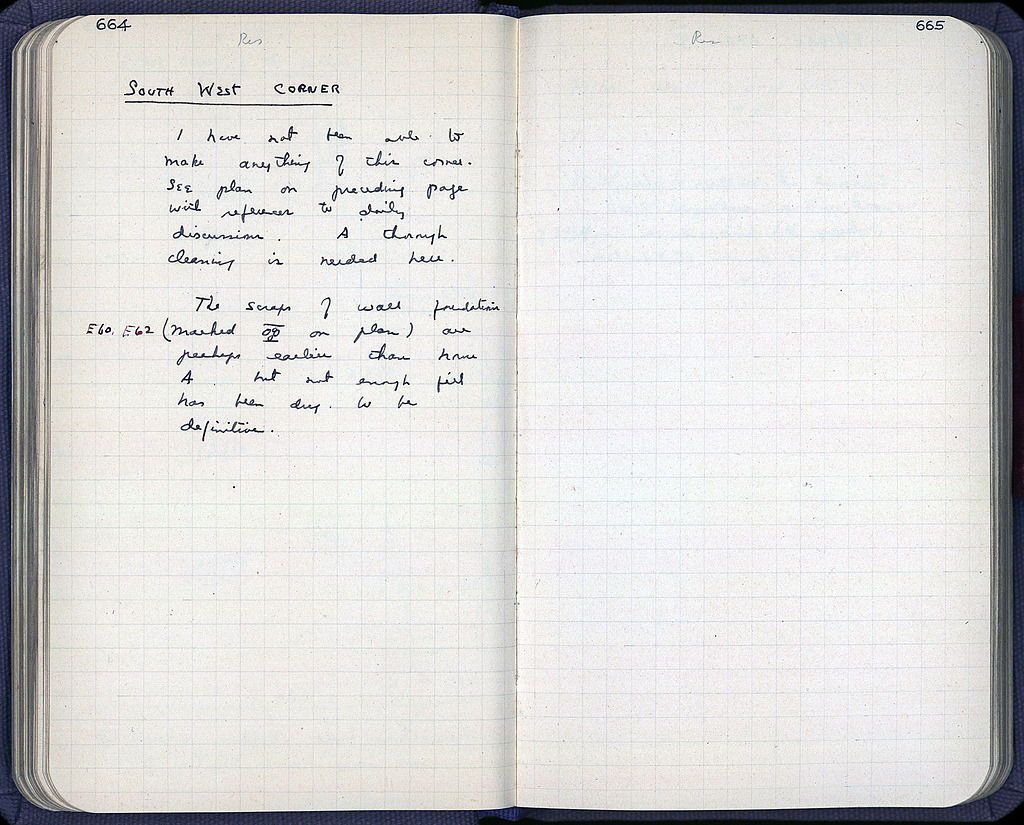 664
Res
SOUTH WEST CORNER
I have not been able to
make anything of this corner.
SEE plan on preceding page
with references to daily
discussion. A thorough
cleaning is needed here.
The scraps of wall foundation
E60, E62 (marked on plan) are
perhaps earlier than house
A. but not enough
has been dug. to be
definitive.
665
Res